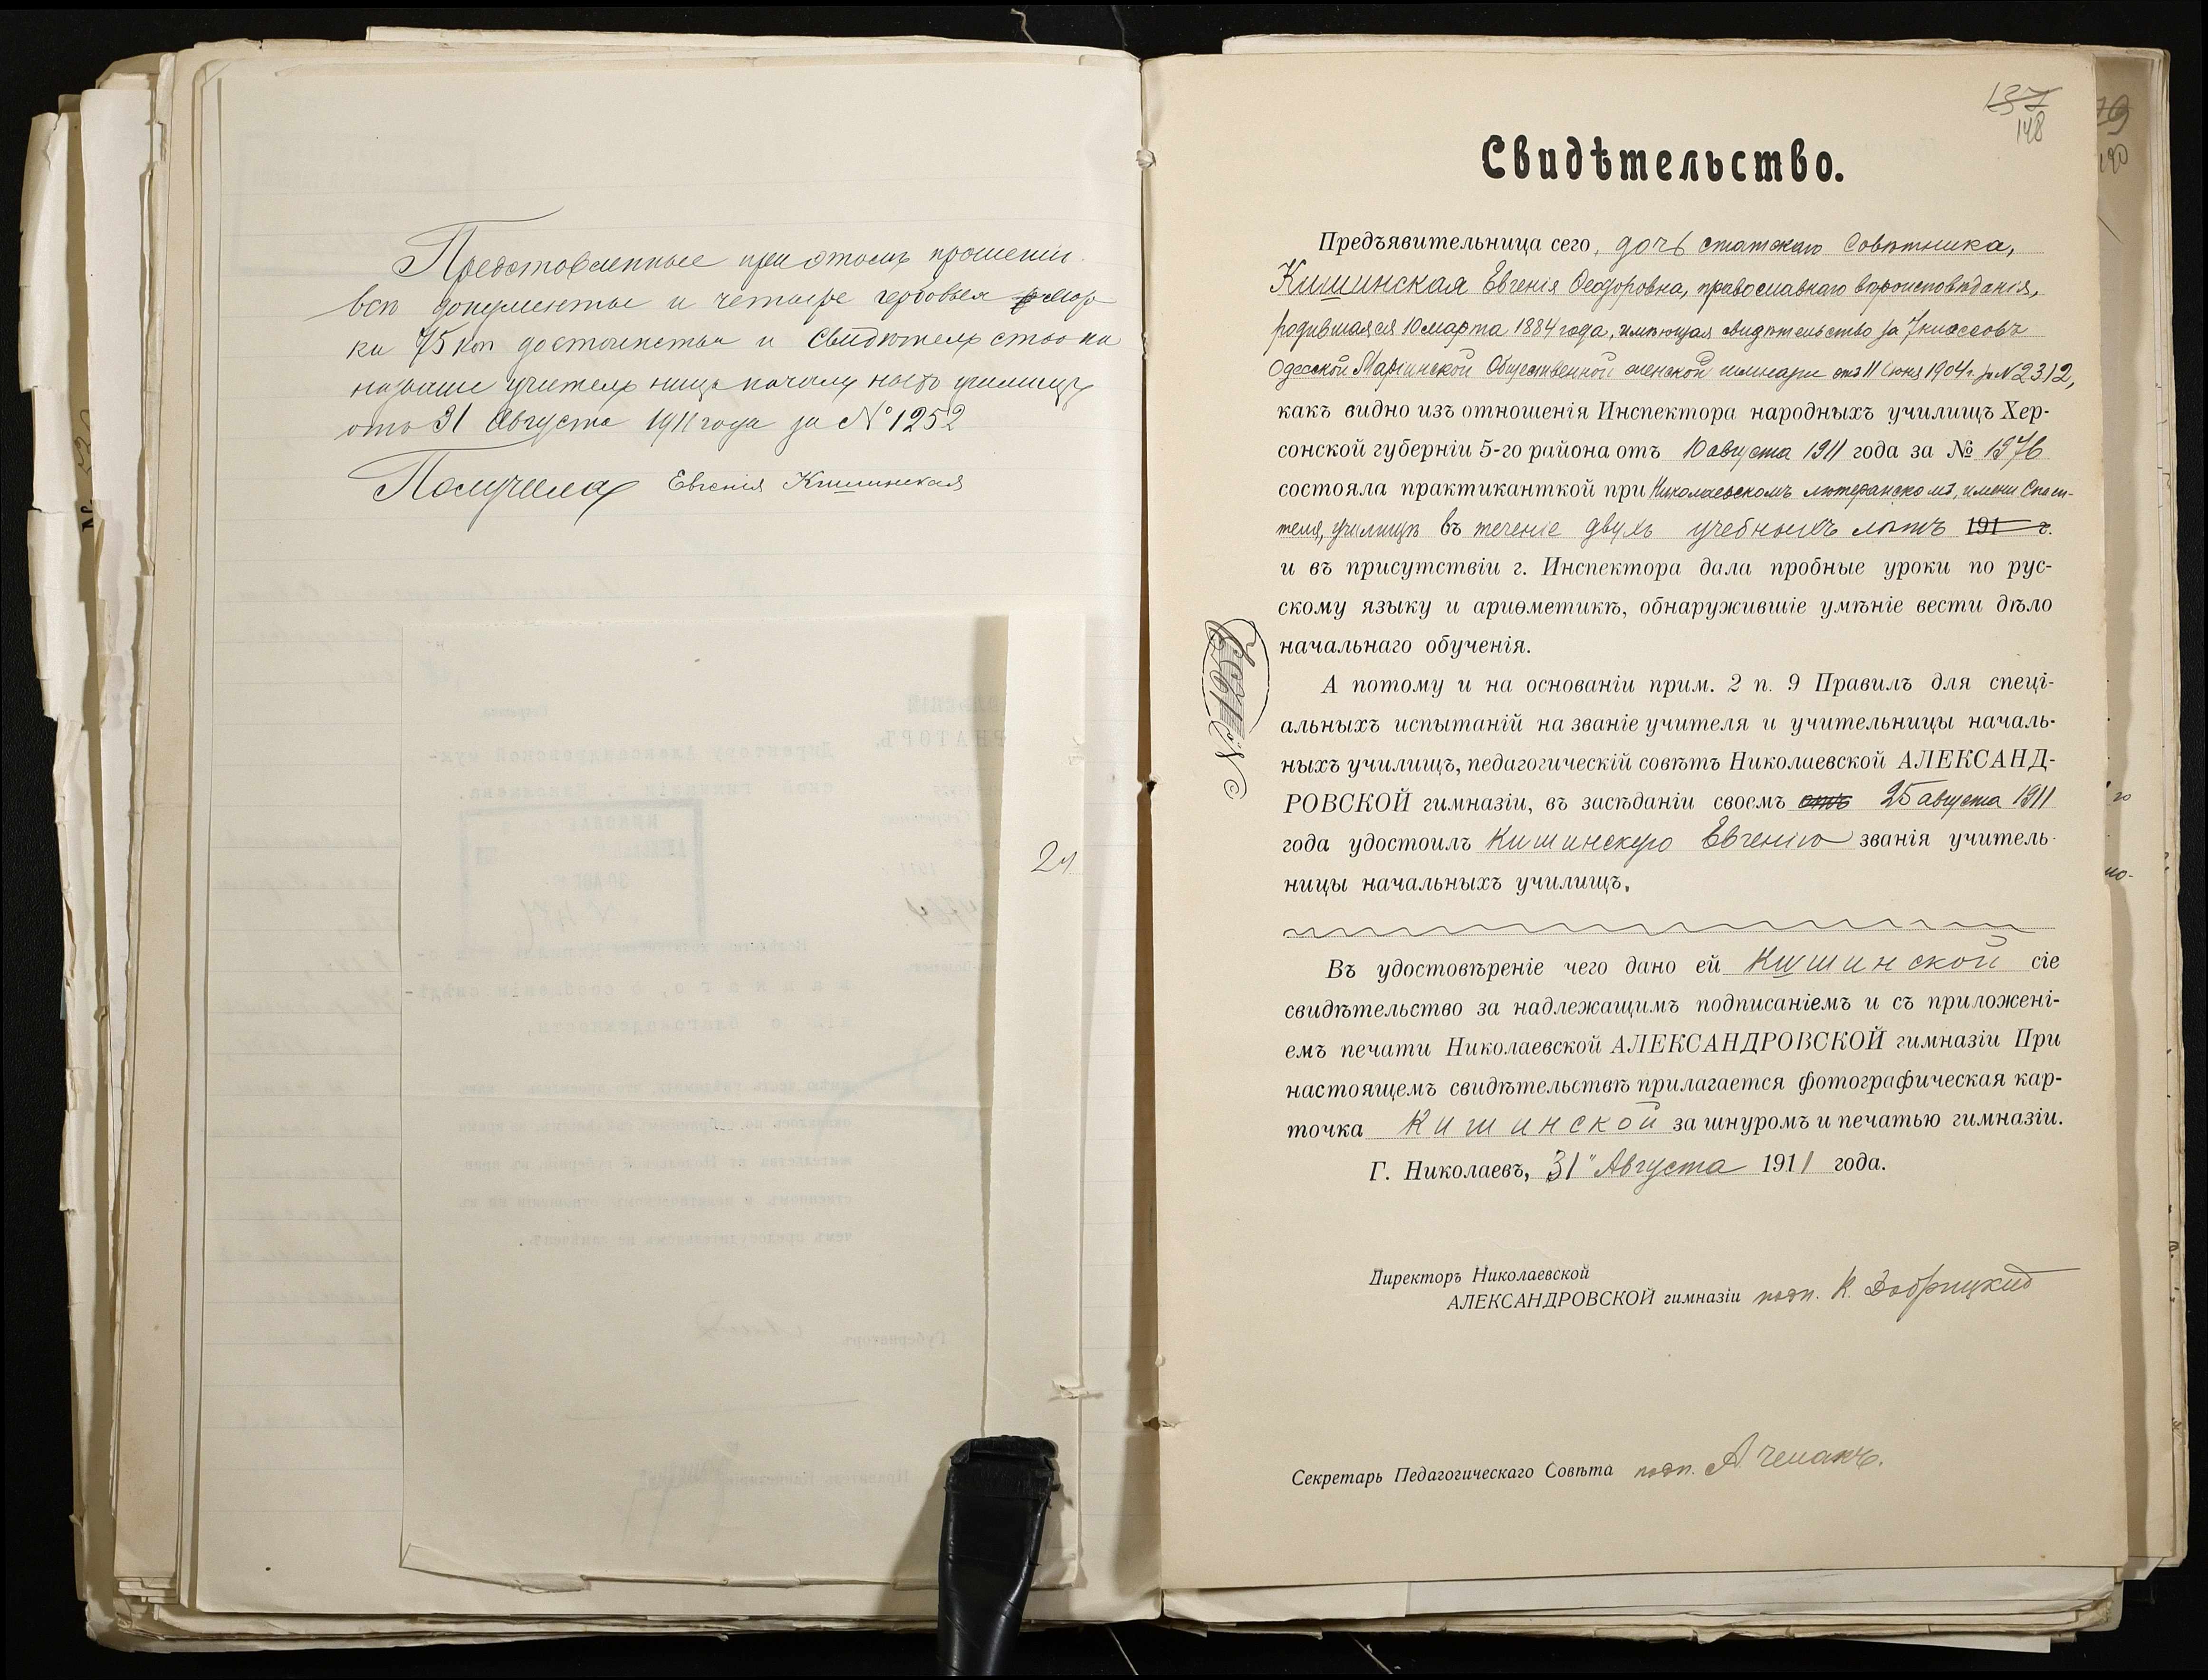 Представленные при этомъ прошеніи
всѣ документы и четыре гербовыя мар
ки 75 коп достоинства и свидѣтельство на
званіе учительницы начальныхъ училищъ
отъ 31 Августа 1911 года за № 1252
Получила Евгенія Кишинская
21
137
148
Свидѣтельство.
Предъявительница сего, дочь статскаго Совѣтника,
Кишинская Евгенія Ѳеодоровна, православнаго вѣроисповѣданія,
родившаяся 10 марта 1884 года, имѣющая свидѣтельство за 7 классовъ
Одесской Маріинской Общественной женской гимназіи отъ 11 Іюня 1904 г. за № 2312,
какъ видно изъ отношенія Инспектора народныхъ училищъ Хер-
сонской губерніи 5-го района отъ 10 августа 1911 года за № 1976
состояла практиканткой при Николаевскомъ лютеранскомъ, имени Спаси-
теля, училищѣ въ теченіе двухъ учебныхъ лѣтъ 191 г.
и въ присутствіи г. Инспектора дала пробные уроки по рус-
скому языку и ариѳметикѣ, обнаружившіе умѣніе вести дѣло
начальнаго обученія.
А потому и на основаніи прим. 2 п. 9 Правилъ для спеці-
альныхъ испытаній на званіе учителя и учительницы началь-
ныхъ училищъ, педагогическій совѣтъ Николаевской АЛЕКСАНД-
РОВСКОЙ гимназіи, въ засѣданіи своемъ отъ 25 августа 1911
года удостоилъ Кишинскую Евгенію званія учитель-
ницы начальныхъ училищъ.
Въ удостовѣреніе чего дано ей Кишинской сіе
свидѣтельство за надлежащимъ подписаніемъ и съ приложені-
емъ печати Николаевской АЛЕКСАНДРОВСКОЙ гимназіи При
настоящемъ свидѣтельствѣ прилагается фотографическая кар-
точка Кишинской за шнуромъ и печатью гимназіи.
Г. Николаевъ, 31" Августа 1911 года.
Директоръ Николаевской
АЛЕКСАНДРОВСКОЙ гимназіи подп. К. Добрицкій
Секретарь Педагогическаго Совѣта подп. А.
№ 1252